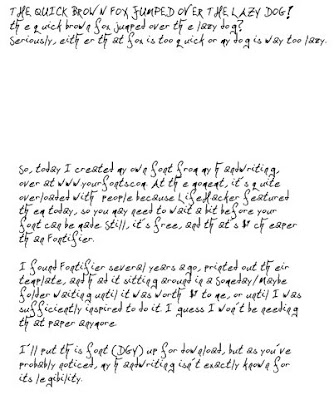 THE QUICK BROWN FOX JUMPED OVER THE LAZY DOG!
the quick brown fox jumped over the lazy dog?
Seriously, either that fox is too quick or my dog is way too lazy.
So, today I created my own font from my handwriting,
over at www.yourfonts.com. At the moment, it's quite
overloaded with people because LifeHacker featured
them today, so you may need to wait a bit before your
font can be made. Still, it's free, and that's $9 cheaper
than Fontifier.
I found Fontifier several years ago, printed out their
template, and had it sitting around in a Someday/Maybe
folder waiting until it was worth $9 to me, or until I was
sufficiently inspired to do it. I guess I won't be needing
that paper anymore
I'll put this font (DGY) up for download, but as you've
probably noticed, my handwriting isn't exactly known for
its legibility.